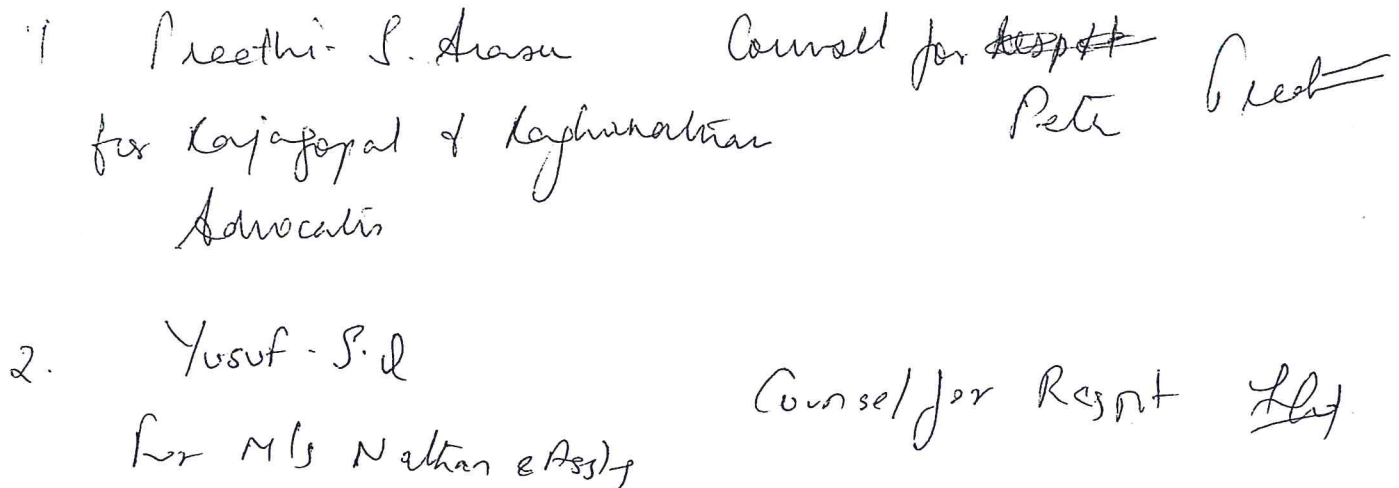 1 Preethi. S. Arasu Counsell for Respdt
for Rajagopal & Raghunathan Petr
Advocates
2. Yusuf. S.I Counsel for Respnt
for M/s Nathan & Assts